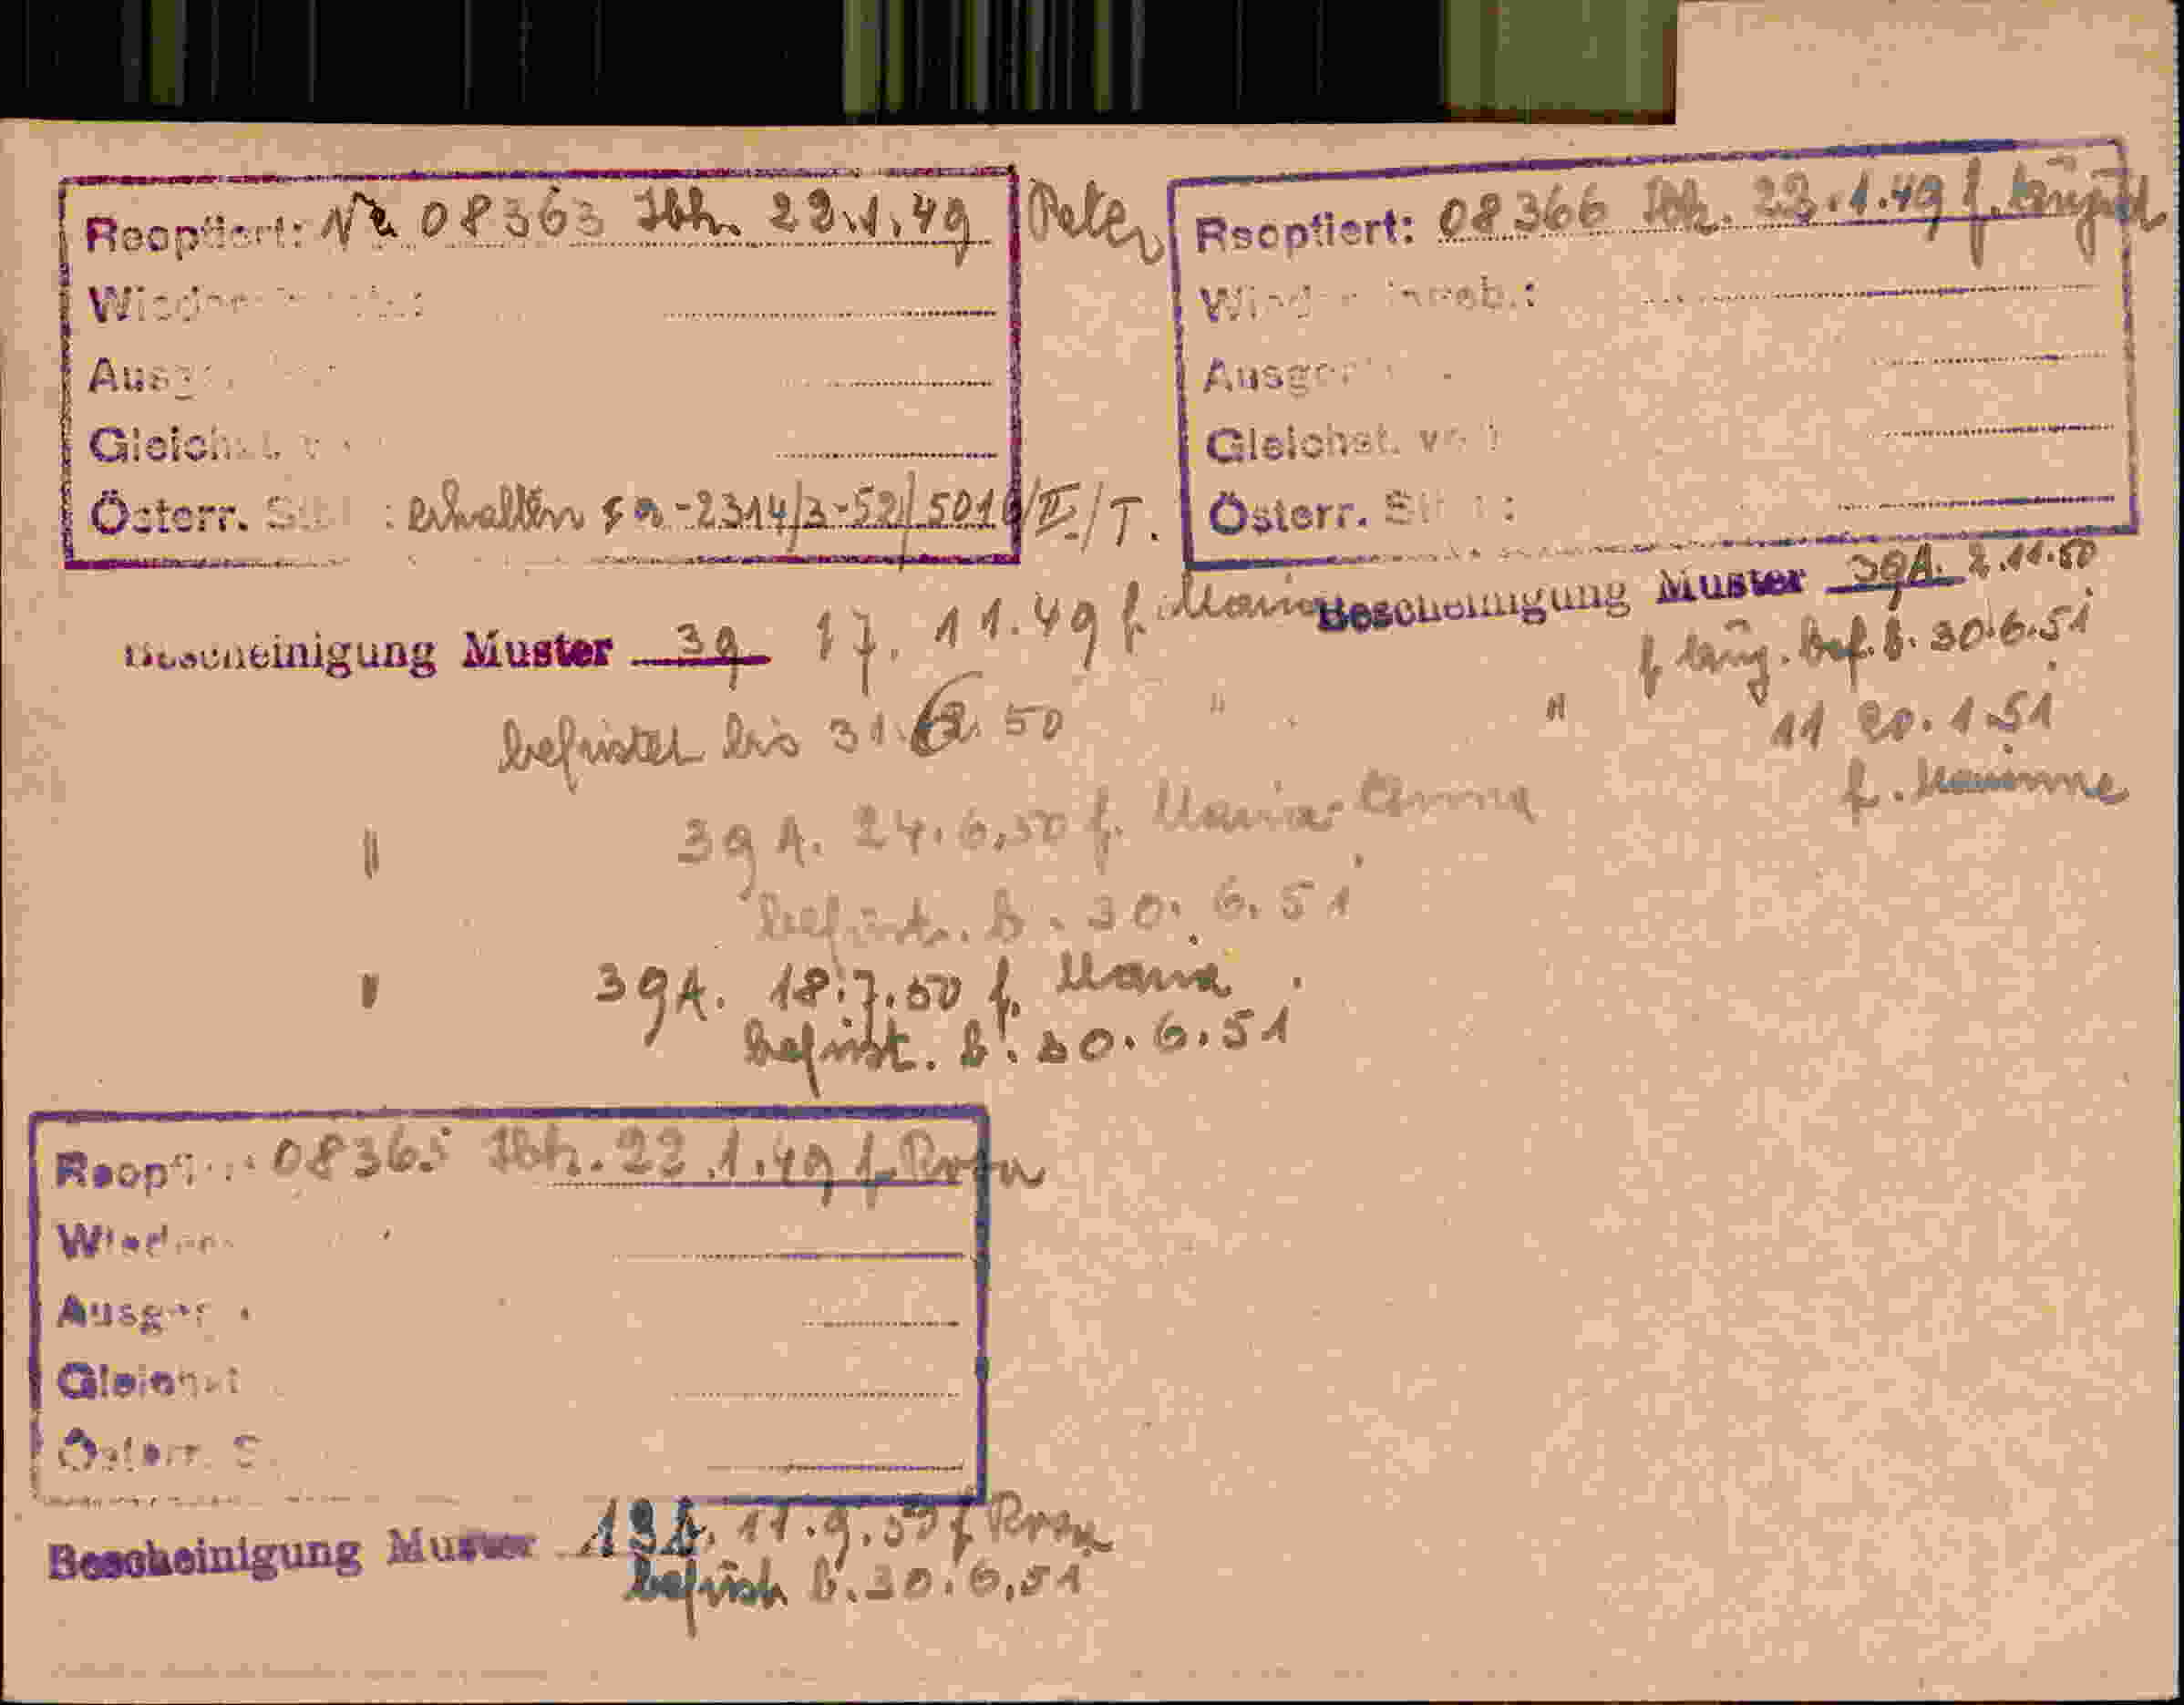 Reoptiert: Nr. 08363 Ibk. 22.1.49 Peter
Ausg
Gleichst. v
Österr. St : erhalten 2314/3-52/501 /II/T.
Reoptiert: 08366 Ibk. 22.1.49 f.
Ausger
Gleichst. v
Österr. St :
Bescheinigung Muster 39 17.11.49 f. Maria
befristet bis 31. 50
" 39 A. 24.6.50 f. Maria Anna
befrist. b. 30.6.51
" 39A. 18.7.50 f. Maria
befrist. b. 30.6.51
Bescheinigung Muster 39A. 2.11.50
f. bef. b. 30.6.51
" " 11 20.1.51
f. Marianne
Reopt 08365 Ibk. 22.1.49 f. Rosa
Ausger
Gleichst
Österr. S
Bescheinigung Muster 11.9.50 f Rosa
befrist b. 30.6.51